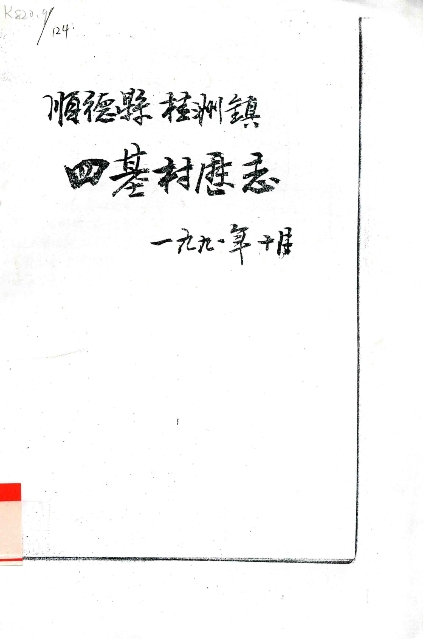 K820.9/124
順德縣桂洲鎮
四基村歷志
一九九一年十月